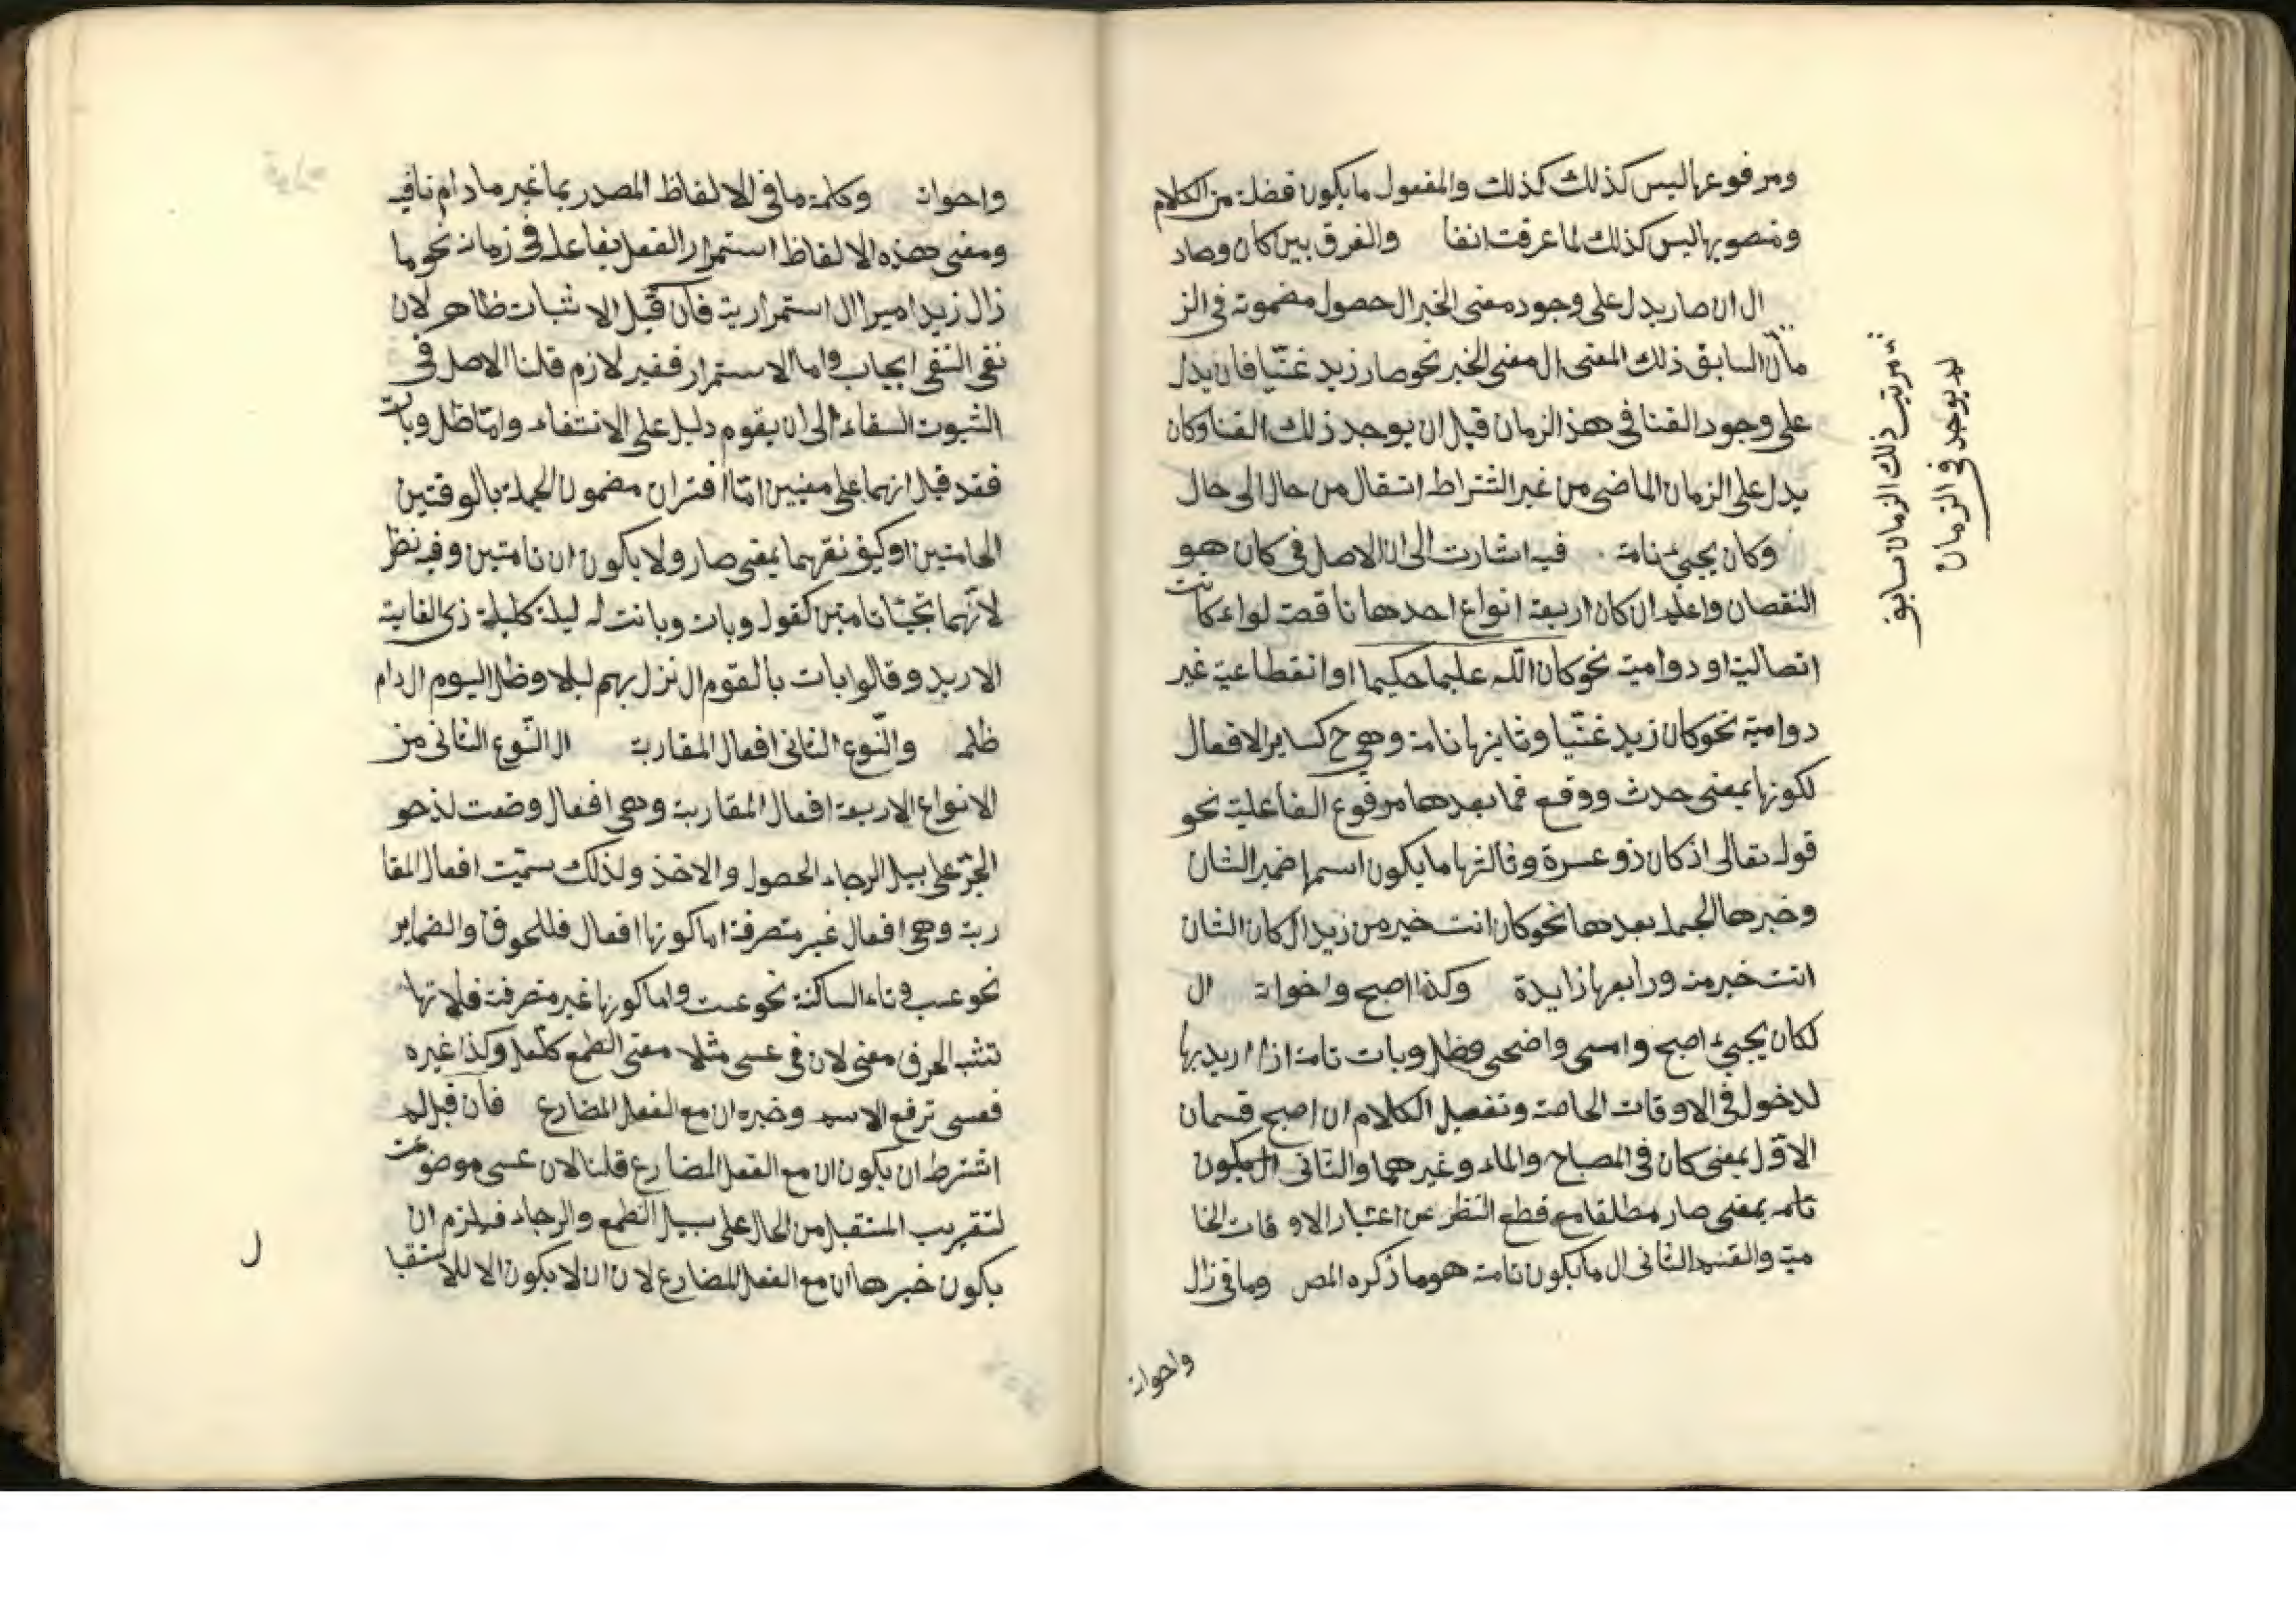 ومرفوعها ليس كذلك كذلك والمفعول ما يكون فضلة من الكلام
ومنصوبها ليس كذلك لما عرفت انفا والفرق بين كان وصار
ال ان صار يدل على وجود معنى الخبر ال حصول مضمونة في الز
مان السابق ذلك المعنى ال معنى الخبر نحو صار زيد غنيا فان يدل
على وجود الغنا في هذ الزمان قبل ان يوجد ذلك الغنا وكان
يدل على الزمان الماضى من غير اشتراط انتقال من حال الى حال
وكان يجيئ تامة فيه اشارت الى ان الاصل في كان هو
النقصان واعلم ان كان اربعة انواع احدها ناقصة سواء كانت
اتصالية او دوامية نحو كان الله عليما حكيما او انقطاعية غير
دوامية نحو كان زيد غنيا وثانيها تامة وهي ح كساير الافعال
لكونها بمعنى حدث ووقع فما بعدها مرفوع الفاعلية نحو
قوله تعالى اذ كان ذو عسرة وثالثها ما يكون اسمها ضمير الشان
وخبرها الجملة بعدها نحو كان انت خير من زيد ال كان الشان
انت خير منه ورابعها زايدة وكذا اصبح واخواته ال
لكان يجيئ اصبح وامسى واضحى وظل وبات تامة اذا اريد بها
لدخول في الاوقات الخاصة وتفصيل الكلام ان اصبح قسمان
الاول بمعنى كان في المصباح والماء وغيرهما والثاني ال يكون
تامه بمعنى صار مطلقا مع قطع النظر عن اعتبار الاوقات الخا
مية والقسم الثانى ال ما يكون تامة هو ما ذكره المص وما في زال
واخواته
ثم يرتب ذلك الزمان سابق
لم يوجد في الزمان
واخواته وكلمة ما في الالفاظ المصدر بما غير مادام نافية
ومعنى هذه الالفاظ استمرار الفعل بفاعله في زمانه نحو ما
زال زيد اميرا ال استمرارية فان قيل الاثبات ظاهر لان
نفى النفى ايجاب واما الاستمرار فغير لازم قلنا الاصل فى
الثبوت البقاء الى ان يقوم دليل على الانتفاء واما ظل وبات
فقد قيل انهما على معنيين اما اقتران مضمون الجملة بالوقتين
الخاصين او كيفو نقرهما بمعنى صار ولا يكون ان تامتين وفيه نظر
لانهما تجيئا تامتين كقوله وبات وباتت له ليلة كليلة ذى الغاية
الاربد وقالوا بات بالقوم ال نزل بهم ليلا وظل اليوم ال دام
ظله والنوع الثانى افعال المقاربة ال النوع الثانى من
الانواع الاربعة افعال المقاربة وهى افعال وضعت لدحو
الجز على سبيل الرجاء الحصول والاخذ ولذلك سميت افعال المقا
ربة وهى افعال غير متصرفة اما كونها افعال فللحوق والضماير
نحو عسب وتاء الساكنة نحو عست واما كونها غير متصرفة فلانها
تشبه الحرف معنى لان في عسى مثلا معنى الطمع كلعل وكذا غيره
فعسى ترفع الاسم وخبره ان مع الفعل المضارع فان قيل لم
اشترط ان يكون ان مع الفعل المضارع قلنا لان عسى موضوعت
لتقريب المستقبل من الحال على سبيل الطمع والرجاء فيلزم ان
يكون خبرها ان مع الفعل المضارع لان ان لا يكون الا للاستقبا